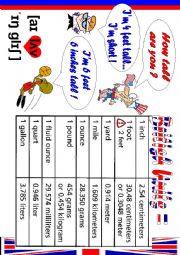 How tall
are you?
I'm 4 feet tall...
I'm short!
I'm 6 feet
6 inches tall!
1 inch 2.54 centimeters
1 foot 30.48 centimeters
2 feet or 0.3048 meter
1 yard 0.914 meter
1 mile 1.609 kilometers
1 ounce 28.350 grams
1 pound 454 grams
or 0.454 kilogram
1 fluid ounce 29.574 milliliters
1 quart 0.946 liter
1 gallon 3.785 liters
[aɪ lʌv
'ɪŋ glɪʃ]